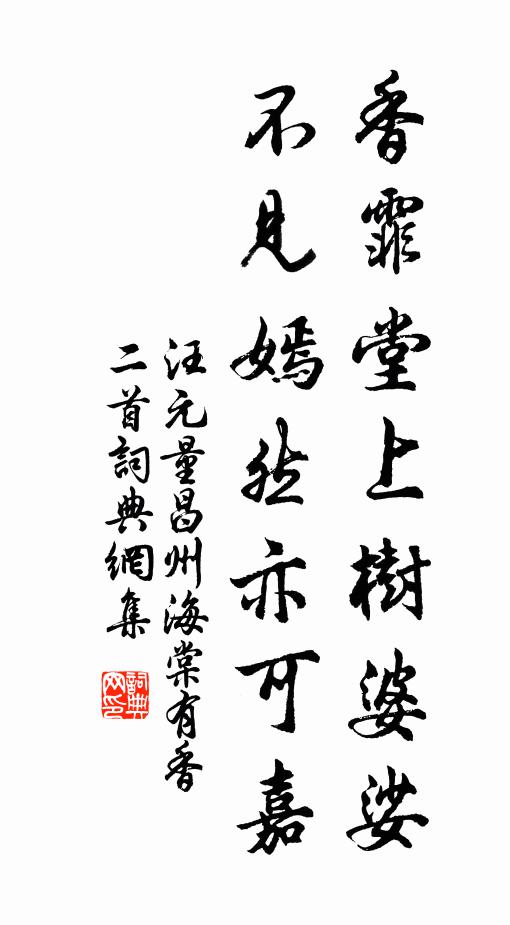 香霏堂上樹婆娑
不見嫣然亦可嘉
汪元量昌州海棠有香
二首詞典網集
詞典
网印